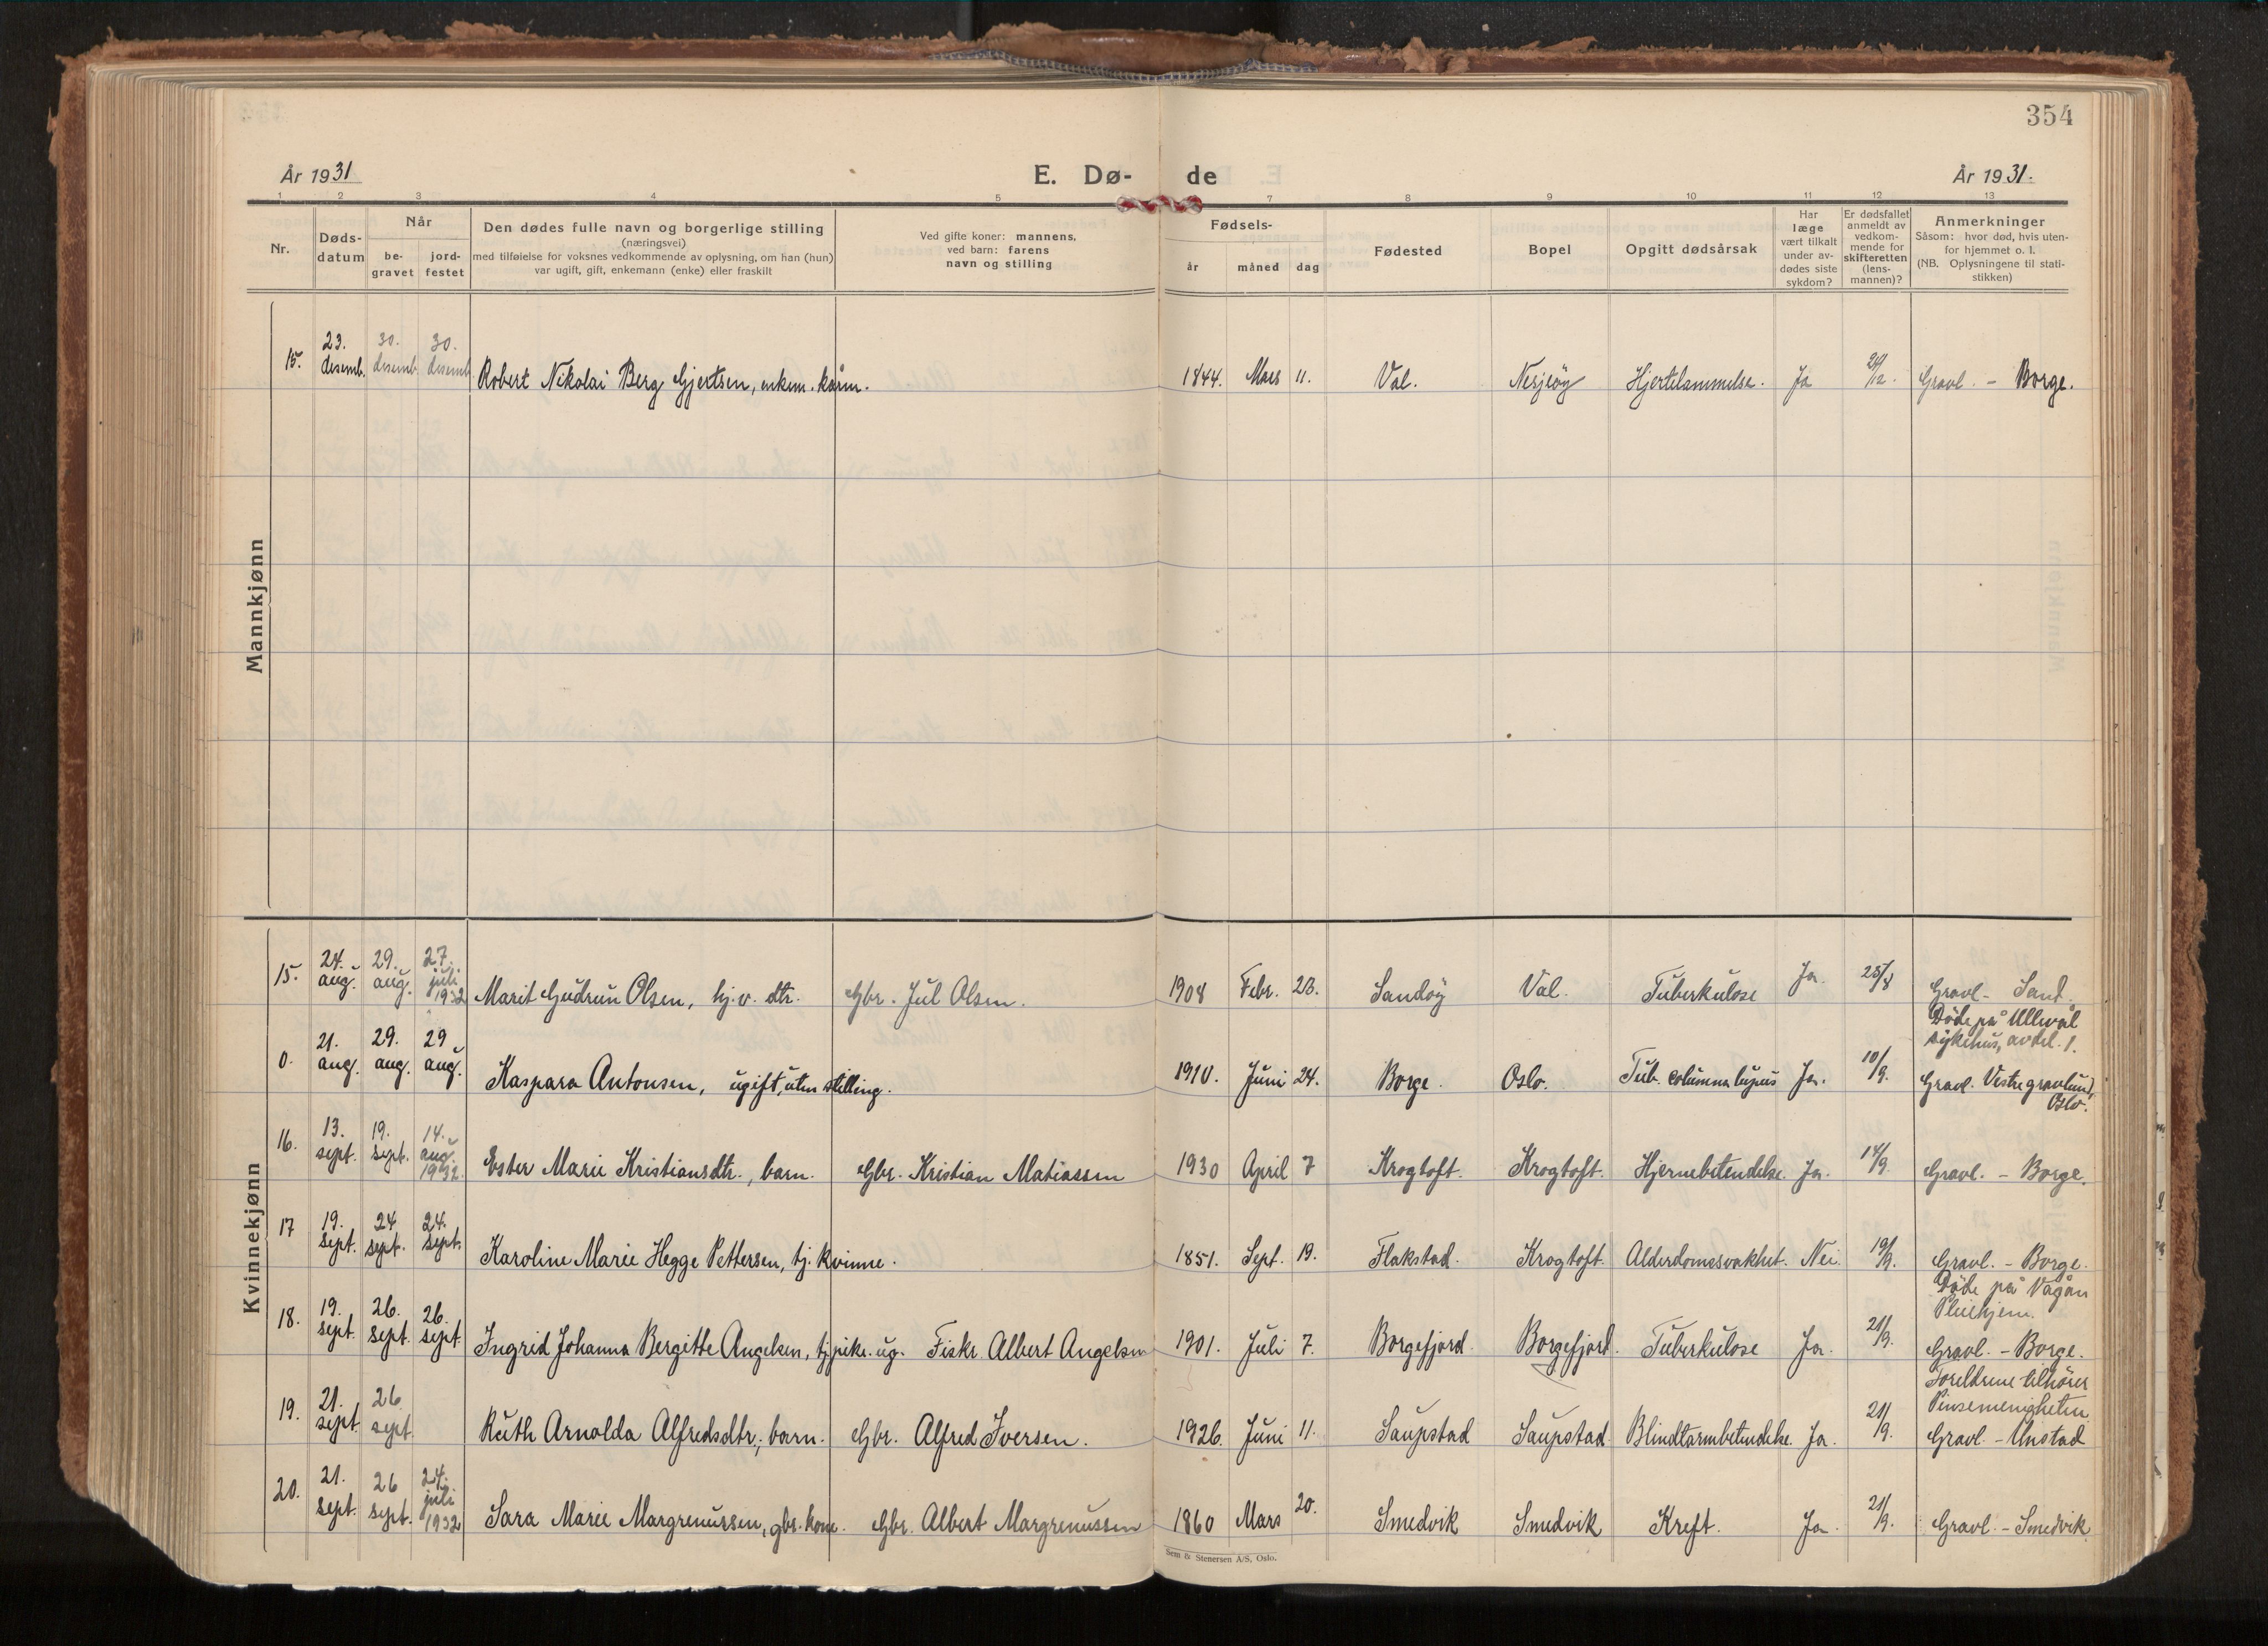 354
År 1931
E. Dø-
de
År 1931.
1 2 3 4 5 7 8 9 10 11 12 13
Nr.
Døds-
datum
Når
be-
gravet
jord-
festet
Den dødes fulle navn og borgerlige stilling
(næringsvei)
med tilføielse for voksnes vedkommende av oplysning, om han (hun)
var ugift, gift, enkemann (enke) eller fraskilt
Ved gifte koner: mannens,
ved barn: farens
navn og stilling
Fødsels-
år måned dag
Fødested
Bopel
Opgitt dødsårsak
Har
læge
vært tilkalt
under av-
dødes siste
sykdom?
Er dødsfallet
anmeldt av
vedkom-
mende for
skifteretten
(lens-
mannen)?
Anmerkninger
Såsom: hvor død, hvis uten-
for hjemmet o. l.
(NB. Oplysningene til stati-
stikken)
Mannkjønn
15. 23. desemb. 30. desemb. 30. desemb. Robert Nikolai Berg Gjertsen, enkem. kårm. 1844. Mars 11. Val. Nesjeöy Hjertelammelse. Ja /12. Gravl. - Borge.
Kvinnekjønn
15. 24. aug. 29. aug. 27. juli 1932 Marit Gudrun Olsen, hj.v. dtr. Gbr. Jul Olsen. 1908 Febr. 23. Sandöy Val. Tuberkulose Ja. 25/8 Gravl. - Sand.
Döde på Ullevål
sykehus, avdel. 1.
0. 21. aug. 29. aug. 29 aug. Kaspara Antonsen, ugift, uten stilling. 1910. Juni 24. Borge. Oslo. Tub. columna lupus Ja. 10/9. Gravl. Vestre gravlund,
Oslo.
16. 13. sept. 19. sept. 14. aug. 1932. Ester Marie Kristiansdtr., barn. Gbr. Kristian Matiassen 1930 April 7 Krogtoft. Krogtoft. Hjernebetendelse. Ja. 14/9. Gravl. - Borge.
17 19. sept. 24 sept. 24. sept. Karoline Marie Hegge Pettersen, tj. kvinne. 1851. Sept. 19. Flakstad. Krogtoft. Alderdomssvakhet. Nei. 19/9. Gravl. - Borge.
Döde på Vågan
Pleiehjem.
18. 19. sept. 26. sept. 26. sept. Ingrid Johanna Bergitte Angelsen, tj.pike. ug. Fiskr. Albert Angelsen 1901. Juli 7. Borgefjord. Borgefjord. Tuberkulose Ja. 21/9. Gravl. - Borge.
Foreldrene tilhörer
Pinsemenigheten.
19. 21. sept. 26 sept. Ruth Arnolda Alfredsdtr., barn. Gbr. Alfred Iversen. 1926. Juni 11. Saupstad Saupstad Blindtarmbetendelse. Ja. 21/9. Gravl. - Unstad
20. 21. sept. 26 sept. 24. juli 1932 Sara Marie Margrenussen, gbr. kone. Gbr. Albert Margrenussen 1860 Mars 20. Smedvik Smedvik Kreft. Ja. 21/9. Gravl. - Smedvik
Sem & Stenersen A/S, Oslo.